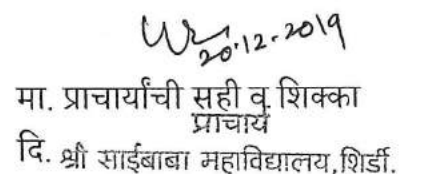 20.12.2019
मा. प्राचार्यांची सही व शिक्का
प्राचार्य
दि. श्री साईबाबा महाविद्यालय,शिर्डी.